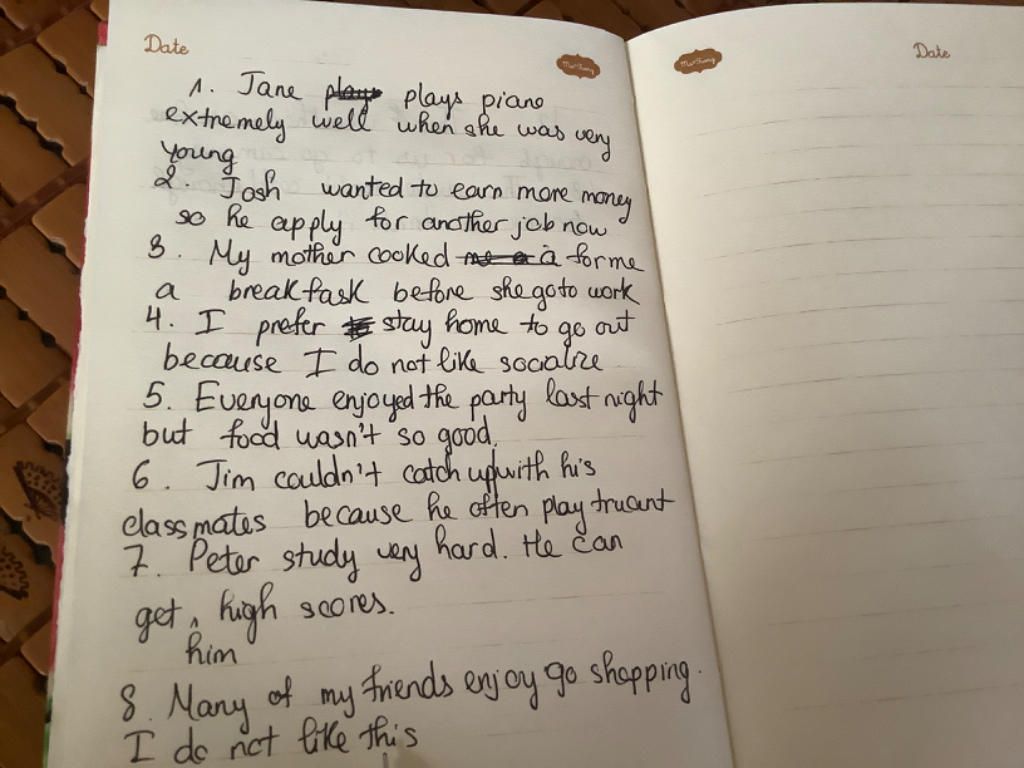 Date
1. Jane plays piano
extremely well when she was very
young
2. Josh wanted to earn more money
so he apply for another job now
3. My mother cooked for me
a breakfask before she go to work
4. I prefer stay home to go out
because I do not like socialize
5. Everyone enjoyed the party last night
but food wasn't so good.
6. Jim couldn't catch up with his
classmates because he often play truant
7. Peter study very hard. He can
get, high scores.
him
8. Many of my friends enjoy go shopping.
I do not like this
Date